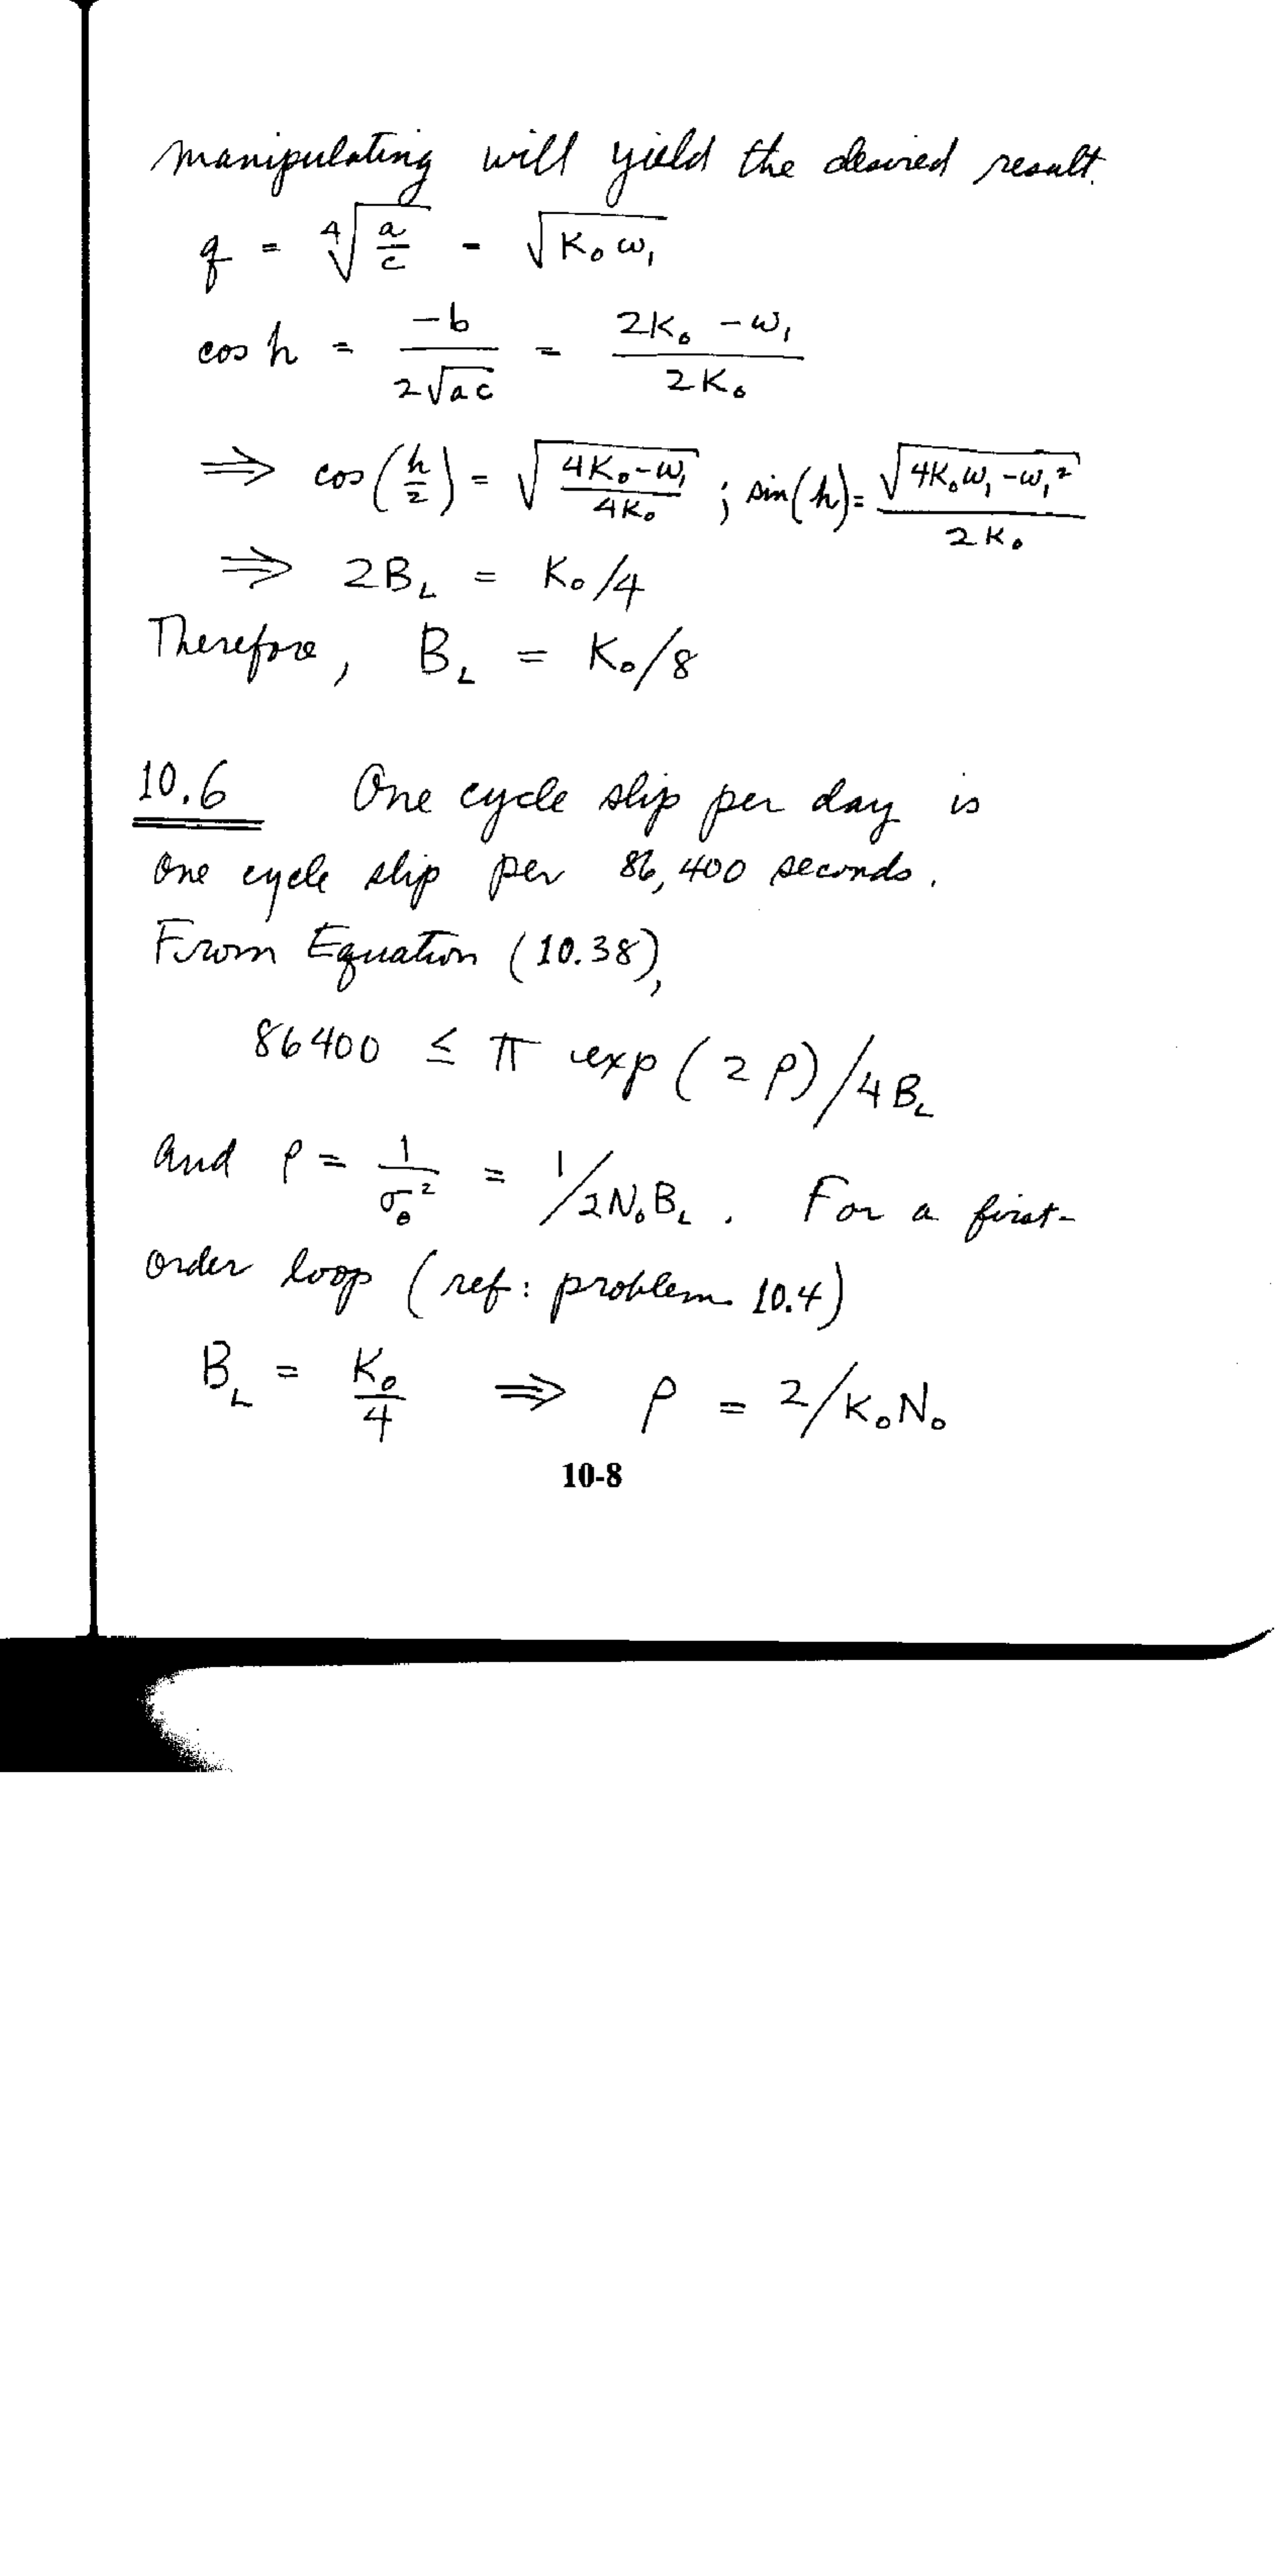 manipulating will yield the desired result.
q = ∜(a/c) = √(K₀ω₁)
cos h = -b / (2√(ac)) = (2K₀ - ω₁) / (2K₀)
⟹ cos(h/2) = √((4K₀-ω₁)/(4K₀)) ; sin(h) = √(4K₀ω₁-ω₁²) / (2K₀)
⟹ 2B_L = K₀/4
Therefore, B_L = K₀/8
10.6 One cycle slip per day is
one cycle slip per 86,400 seconds.
From Equation (10.38),
86400 ≤ π exp(2ρ)/4B_L
and ρ = 1/σ_θ² = 1/2N₀B_L. For a first-
order loop (ref: problem 10.4)
B_L = K₀/4 ⟹ ρ = 2/K₀N₀
10-8